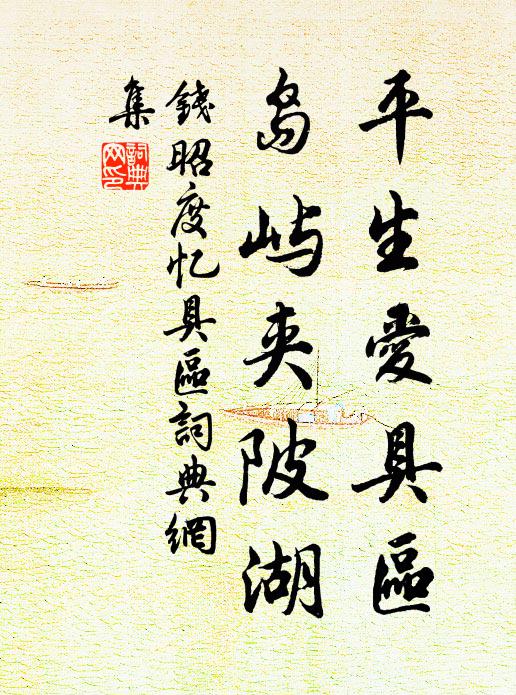 平生愛具區
島嶼夾陂湖
錢昭度忆具區詞典網
集
詞典網印